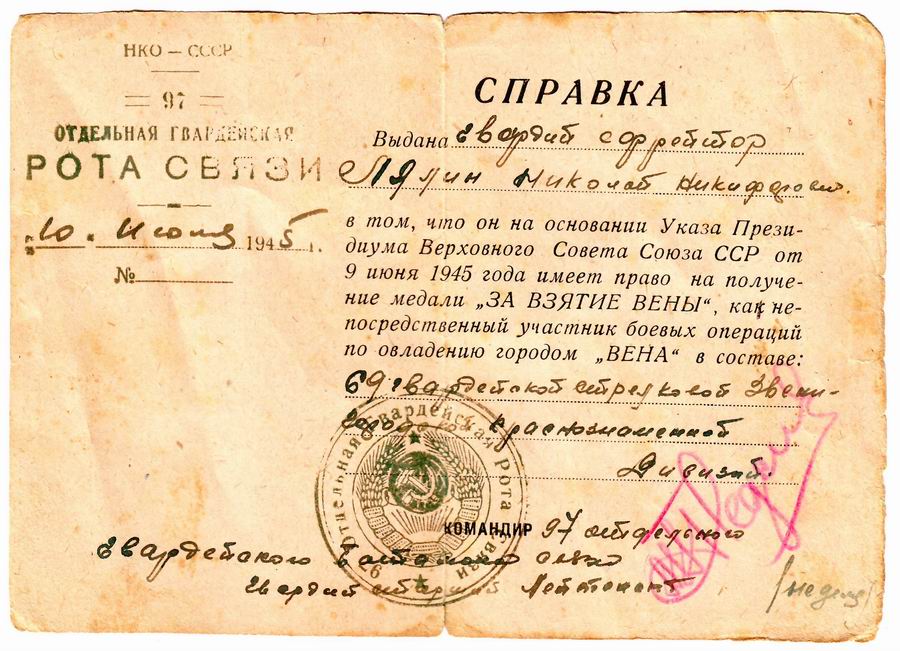 НКО — СССР
97
ОТДЕЛЬНАЯ ГВАРДЕЙСКАЯ
РОТА СВЯЗИ
„10“ Июля 1945 г.
№
СПРАВКА
Выдана Гвардий Ефрейтор
Лялин Николай Никифорович.
в том, что он на основании Указа Прези-
диума Верховного Совета Союза ССР от
9 июня 1945 года имеет право на получе-
ние медали „ЗА ВЗЯТИЕ ВЕНЫ“, как не-
посредственный участник боевых операций
по овладению городом „ВЕНА“ в составе:
69 гвардейской стрелковой Звени-
городской Краснознаменной
Дивизий.
97 Отдельная гвардейская Рота связи
КОМАНДИР 97 отдельного
Гвардейского батальона связи
Гвардий старший Лейтенант